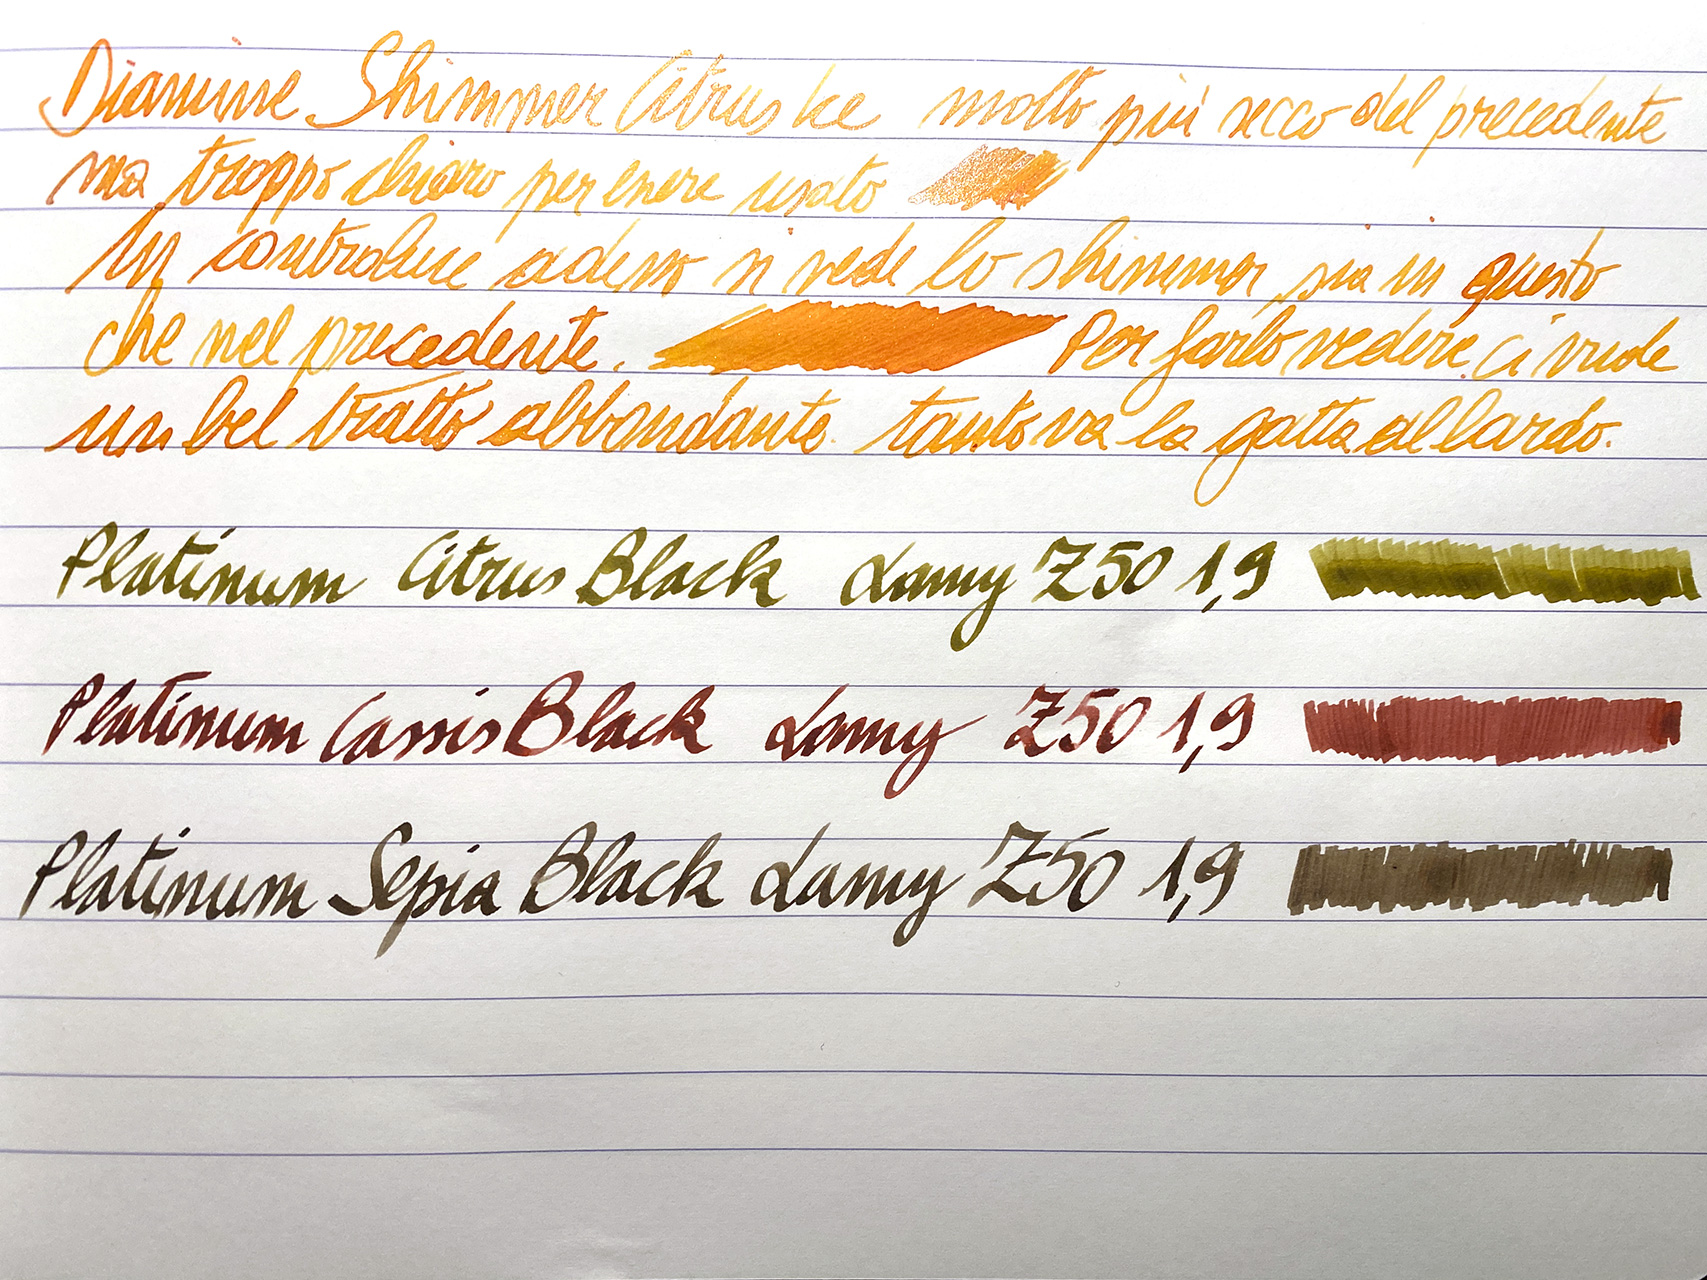 Diamine Shimmer Citrus Ice molto più secco del precedente
ma troppo chiaro per essere usato
In controluce adesso si vede lo shimmer sia in questo
che nel precedente. Per farlo vedere ci vuole
un bel tratto abbondante. tanto va la gatta al lardo.
Platinum Citrus Black Lamy Z50 1,9
Platinum Cassis Black Lamy Z50 1,9
Platinum Sepia Black Lamy Z50 1,9